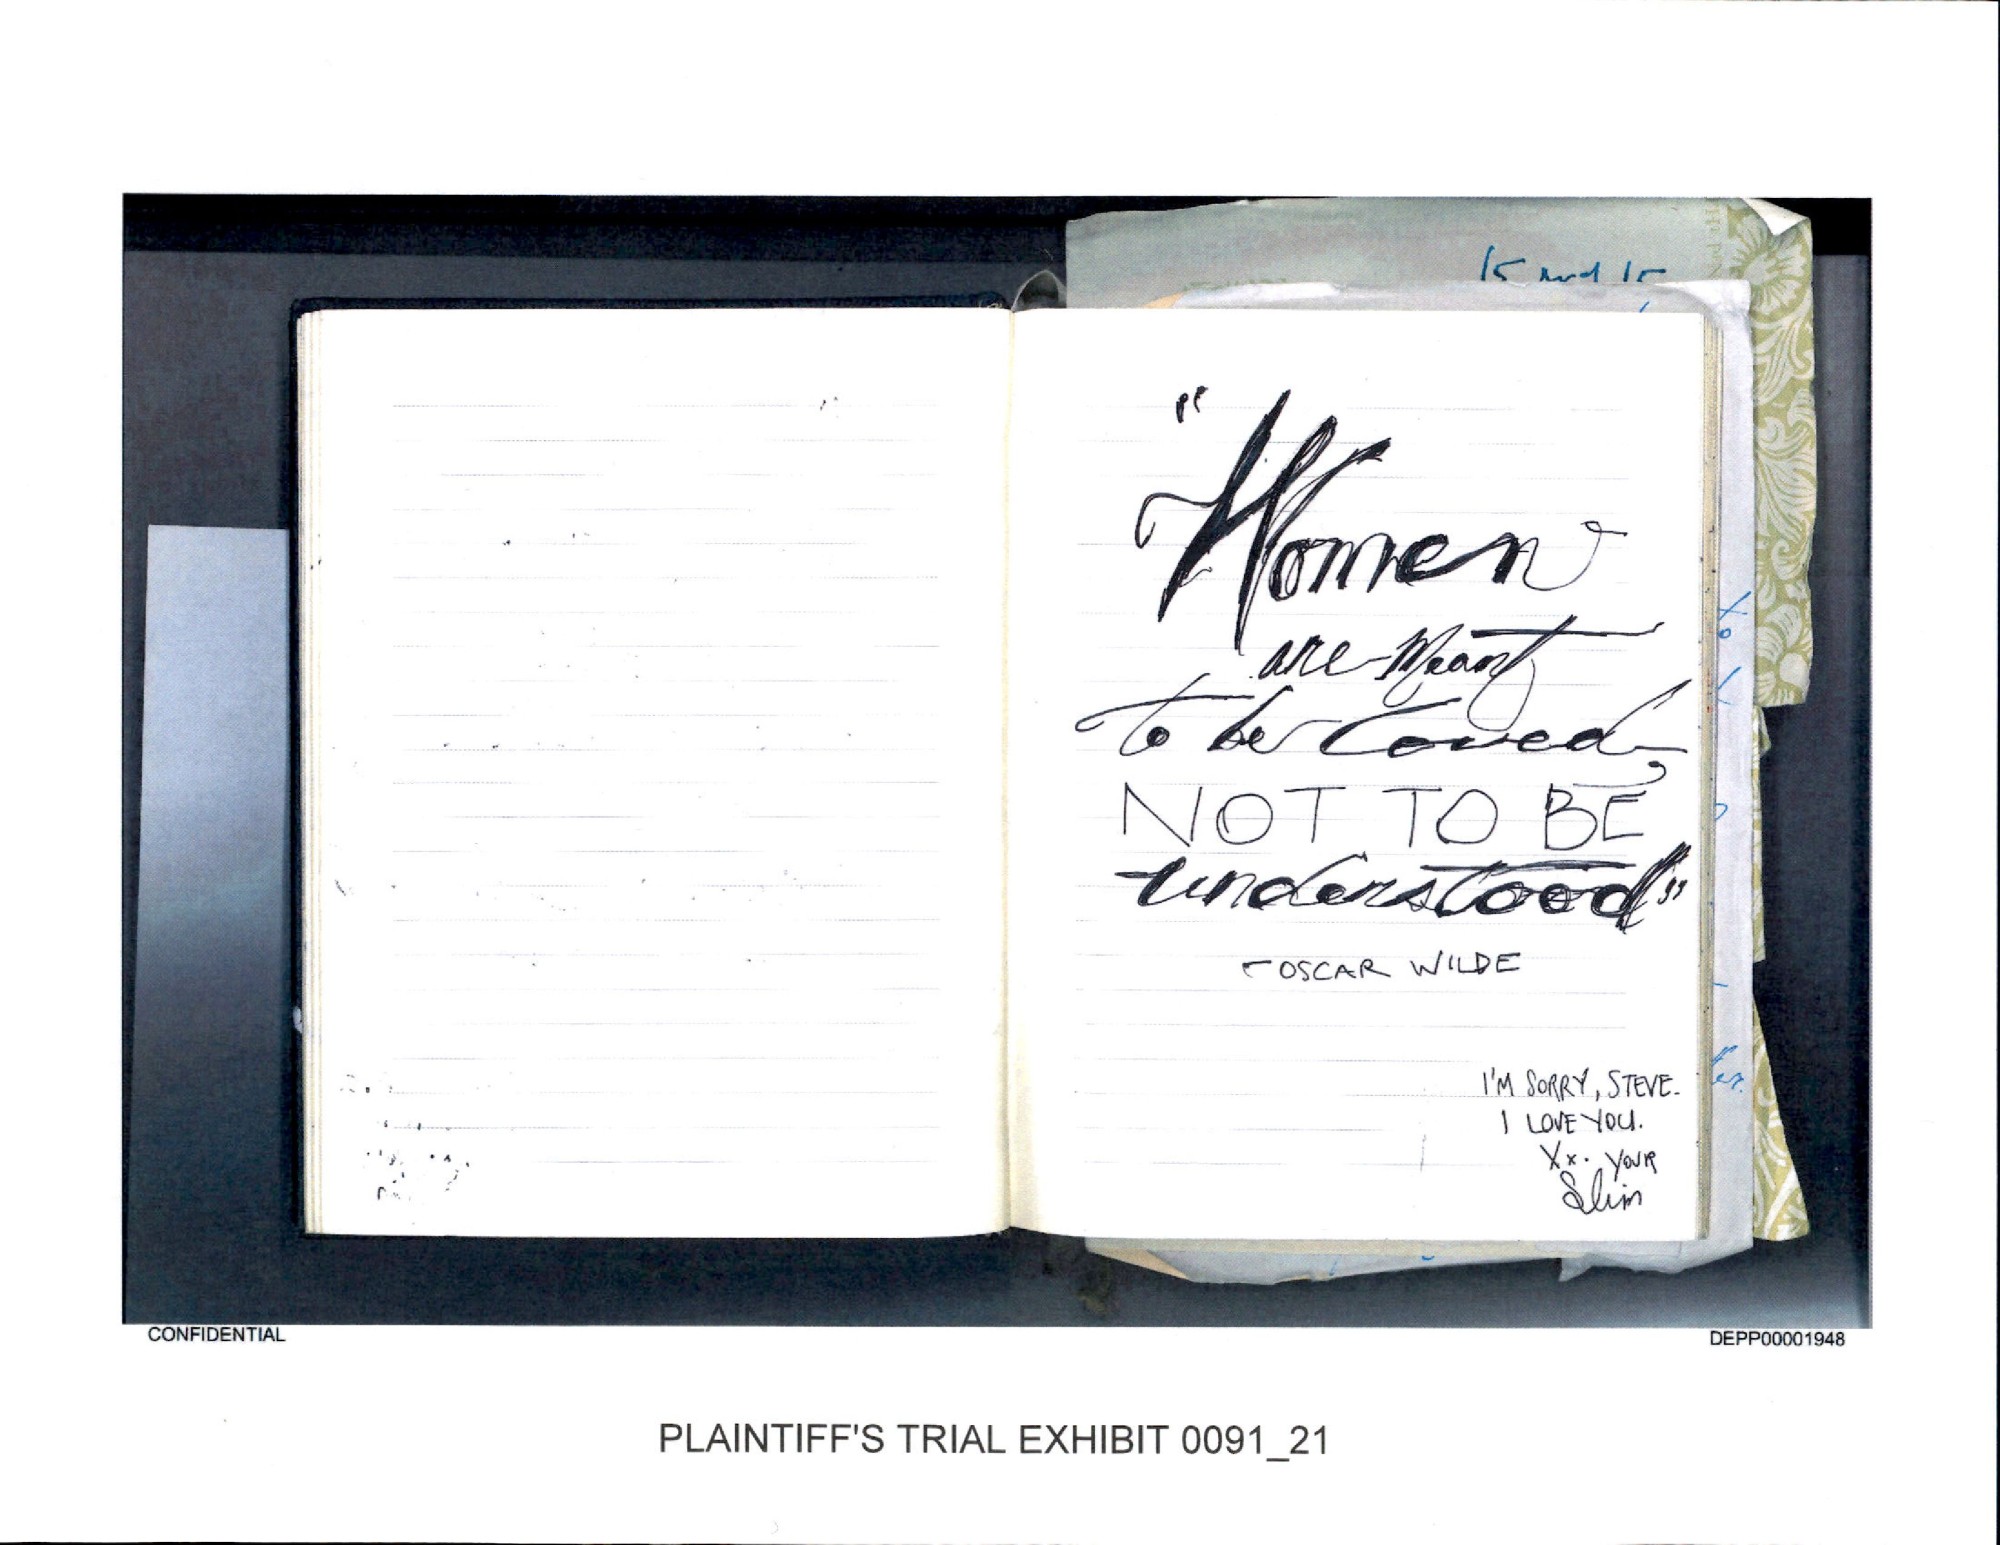 15
15
"Women
are meant
to be loved,
NOT TO BE
understood"
- OSCAR WILDE
I'M SORRY, STEVE.
I LOVE YOU.
Xx. YOUR
Slim
CONFIDENTIAL
DEPP00001948
PLAINTIFF'S TRIAL EXHIBIT 0091_21